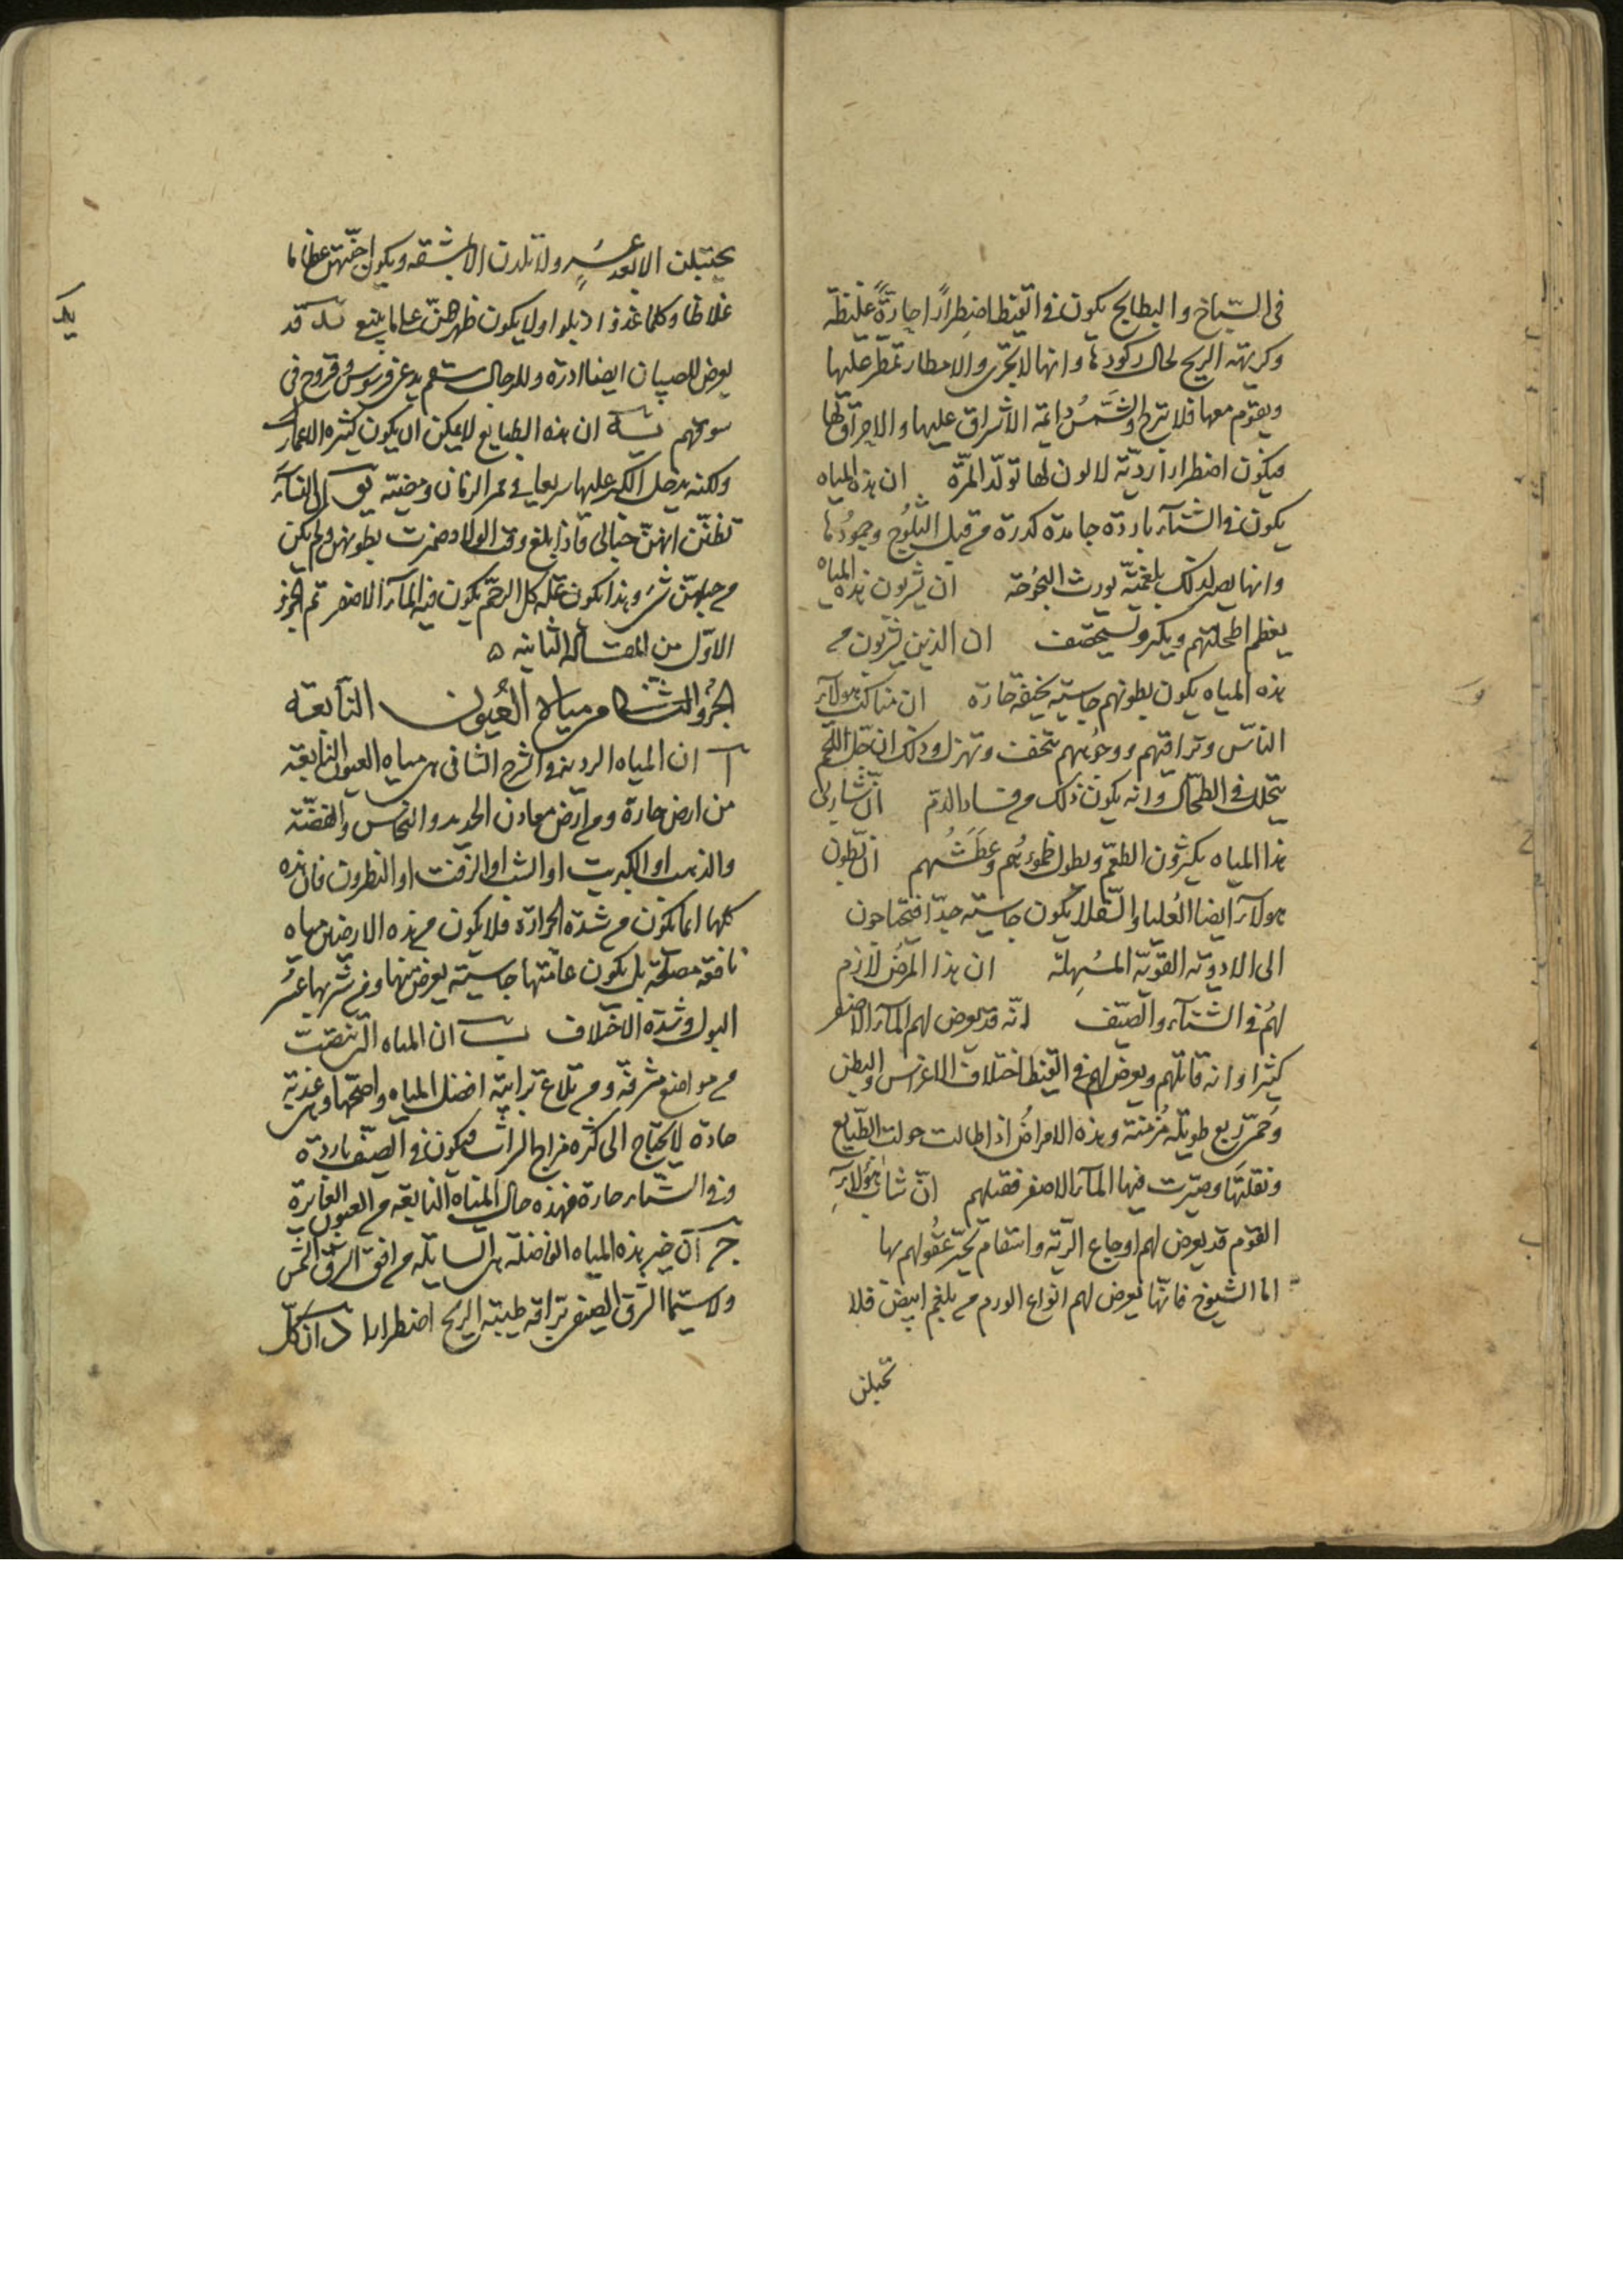 فى السّباخ والبطايح يكون فى القيظ اضطراراً حارّةً غليظة
وكريهة الريح لحال ركودها وانها لا تجرى والامطار تمطر عليها
ويقوم معها فلا تبرح والشَّمسُ دائمة الاشراق عليها والاحراق لها
فيكون اضطرارا رديّة لا لون لها تولّد المرّة ان هذه المياه
يكون فى الشتآء باردة جامدة كدرة من قبل الثلُوج وجمودُها
وانها يصير لذلك بلغميّة يورث البحُوحة ان يشربون هذه المياه
يعظم اطحلتهم ويكبر ان الذين يشربون من
هذه المياه يكون بطونهم جاسية حارة ان مناكب هولآء
الناس وتراقيهم ووجوههم تنحف وتهزل وذلك ان جلّ اللّحم
يتحلل فى الطّحال وانه يكون ذلك من فساد الدم انّ شاربى
هذا المياه يكثرون الطعم ويطول ظموءهُم وعَطَشُهم ان بطون
هولآء ايضا العُليا والسّفلا يكون جاسية جدّا فيحتاجون
الى الادوية القويّة المُسهِلة ان هذا المرضُ لازم
لهُم فى الشتآء والصّيف انّه قد يعرض لهم المآء الاصفر
كثيرا وانه قاتلهم ويعرض لهم فى القيظ اختلاف الاغراس والبطن
وحُمّى ربع طويلة مُزمنة وهذه الامراضُ اذا طالت حولت الطّبايع
ونقلتَها وصيّرت فيها المآء الاصفر فقتلهم انّ شباب هؤلآءِ
القوم قد يعرض لهم اوجاع الرّية واسقام تحيّر عقُولهم بها
اما الشيوخ فانّها تعرض لهم انواع الورم من بلغم ابيض فلا
تحبلن
يحتبلن الا بعد عسُرٍ ولا تلدن الا بمشقه ويكون اجنّتهنّ عظاما
غلاظا وكلما غذوا ذبلوا ولا يكون طهرهنّ على ما ينبغى يد قد
يعرض للصبيان ايضا ادرة وللرجال سقم يدعى قرسوس وقروح فى
سوقهم يه ان هذه الطبايع لا يمكن ان يكون كثيره الاعمار
ولكنه يدخل الكبر عليها سريعا فى ممر الزمان ومضيّه يو ان النسآء
تظنّن انهنّ حبالى فاذا بلغ وقت الولاد ضمرت بطونهن ولم يكن
من حبلهنّ شئ وهذا يكون علّة كل الرحم يكون فيه المآء الاصفر تم الجزؤ
الاوّل من المقالة الثانيه ه
الجُزؤ الثانى من مياه العُيون النآبعة
آ ان المياه الردية فى الشرح الثانى هى مياه العيون النابعة
من ارض حارة ومن ارض معادن الحديد والنحاس والفضّة
والذهب او الكبريت او الشب او الزفت او النطرون فان هذه
كلها انما يكون من شدّة الحرارة فلا يكون من هذه الارضين مياه
نافعه مصحّة بل يكون عامّتها جاسية يعرض منها ومن شربها عسُر
البول وشدّة الاختلاف ب ان المياه التى تنصبّ
من مواضع مشرفة ومن تلاع ترابيّة افضل المياه واصحّها وهى عذبة
حادة لا يحتاج الى كثرة مزاج الشراب فيكون فى الصيّف باردة
وفى الشتاء حارة فهذه حال المياه النابعة من العيون الغايرة
ج ان خير هذه المياه الفاضلة هى السايلة من افق الشرق الشّمس
ولاسيّما الشرق الصيفى براقة طيبة الريح اضطرارا د ان كلّ
يد